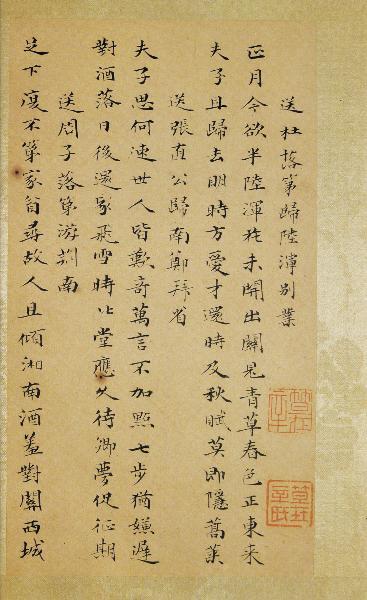 送杜落第歸陸渾別業
正月今欲半陸渾花未開出關見青草春色正東來
夫子且歸去明時方愛才還時及秋賦莫即隱蒿萊
送張直公歸南鄭拜省
夫子思何速世人皆歎奇萬言不加點七步猶嫌遲
對酒落日後還家飛雪時北堂應久待鄉夢促征期
送周子落第游荊南
足下復不第家翁尋故人且傾湘南酒羞對關西城